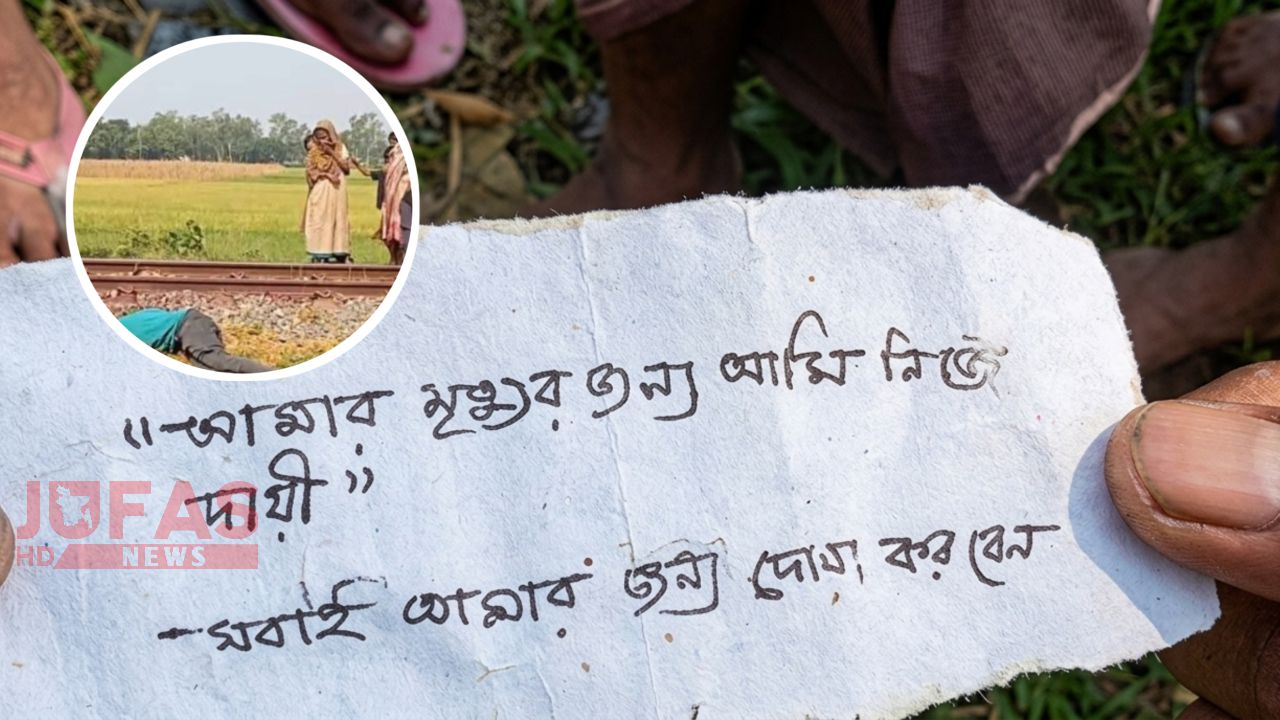 "আমার মৃত্যুর জন্য আমি নিজে
দায়ী"
- সবাই আমার জন্য দোয়া করবেন
JUFAS
HD NEWS